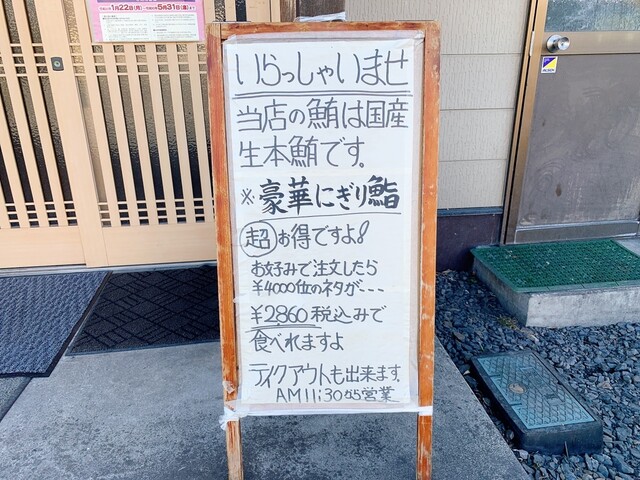 1月22日(月)~ 5月31日(金)
いらっしゃいませ
当店の鮪は国産
生本鮪です。
※豪華にぎり鮨
超お得ですよ!
お好みで注文したら
¥4000位のネタが---
¥2,860税込みで
食べれますよ
テイクアウトも出来ます。
AM11:30から営業